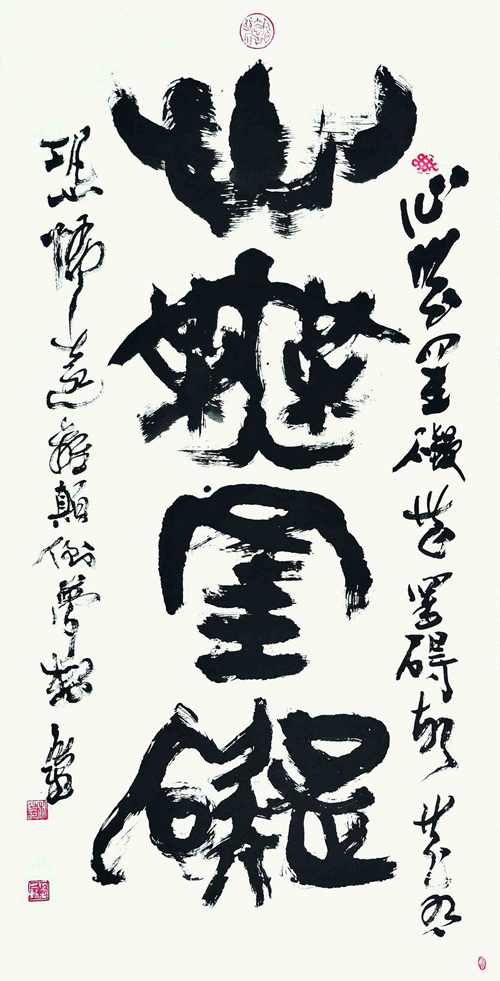 心無罣礙
心無罣礙無罣碍故無有
恐怖遠離顛倒夢想